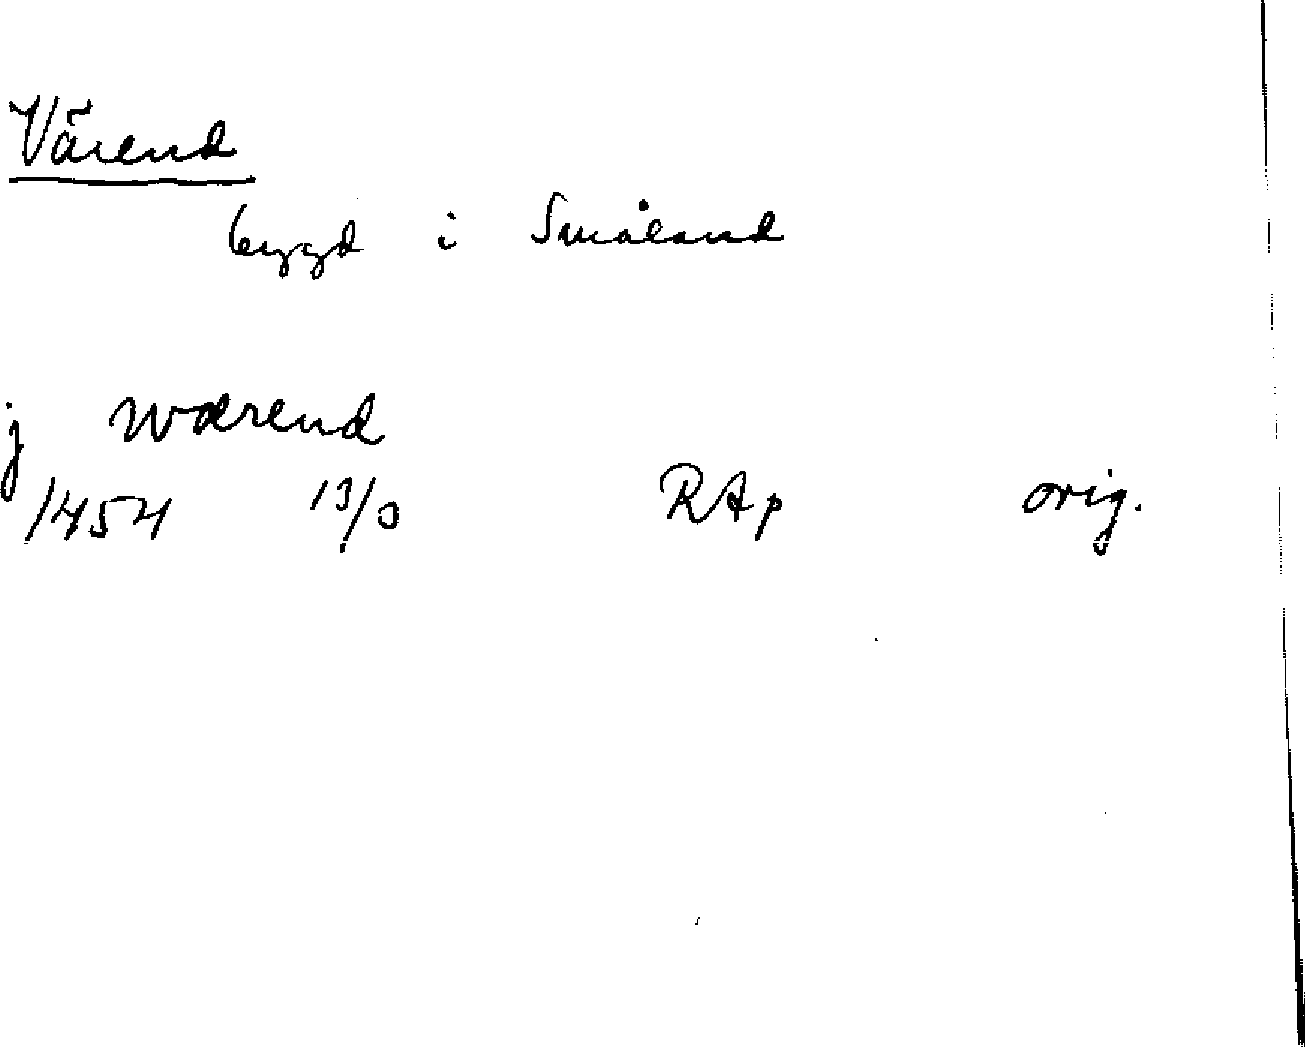 Värend
bygd i Småland
j wærend
1454 13/3 RAp orig.